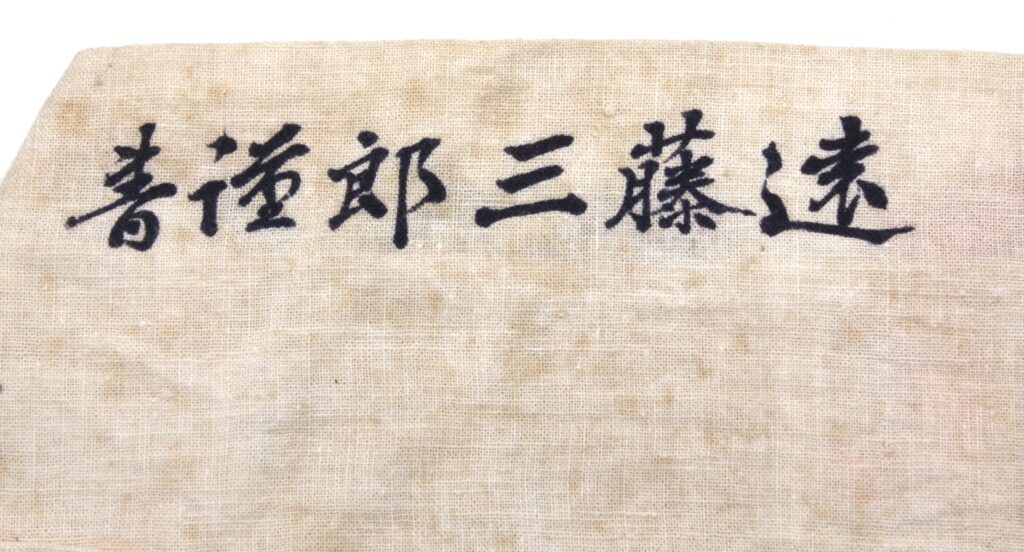 遠藤三郎謹書